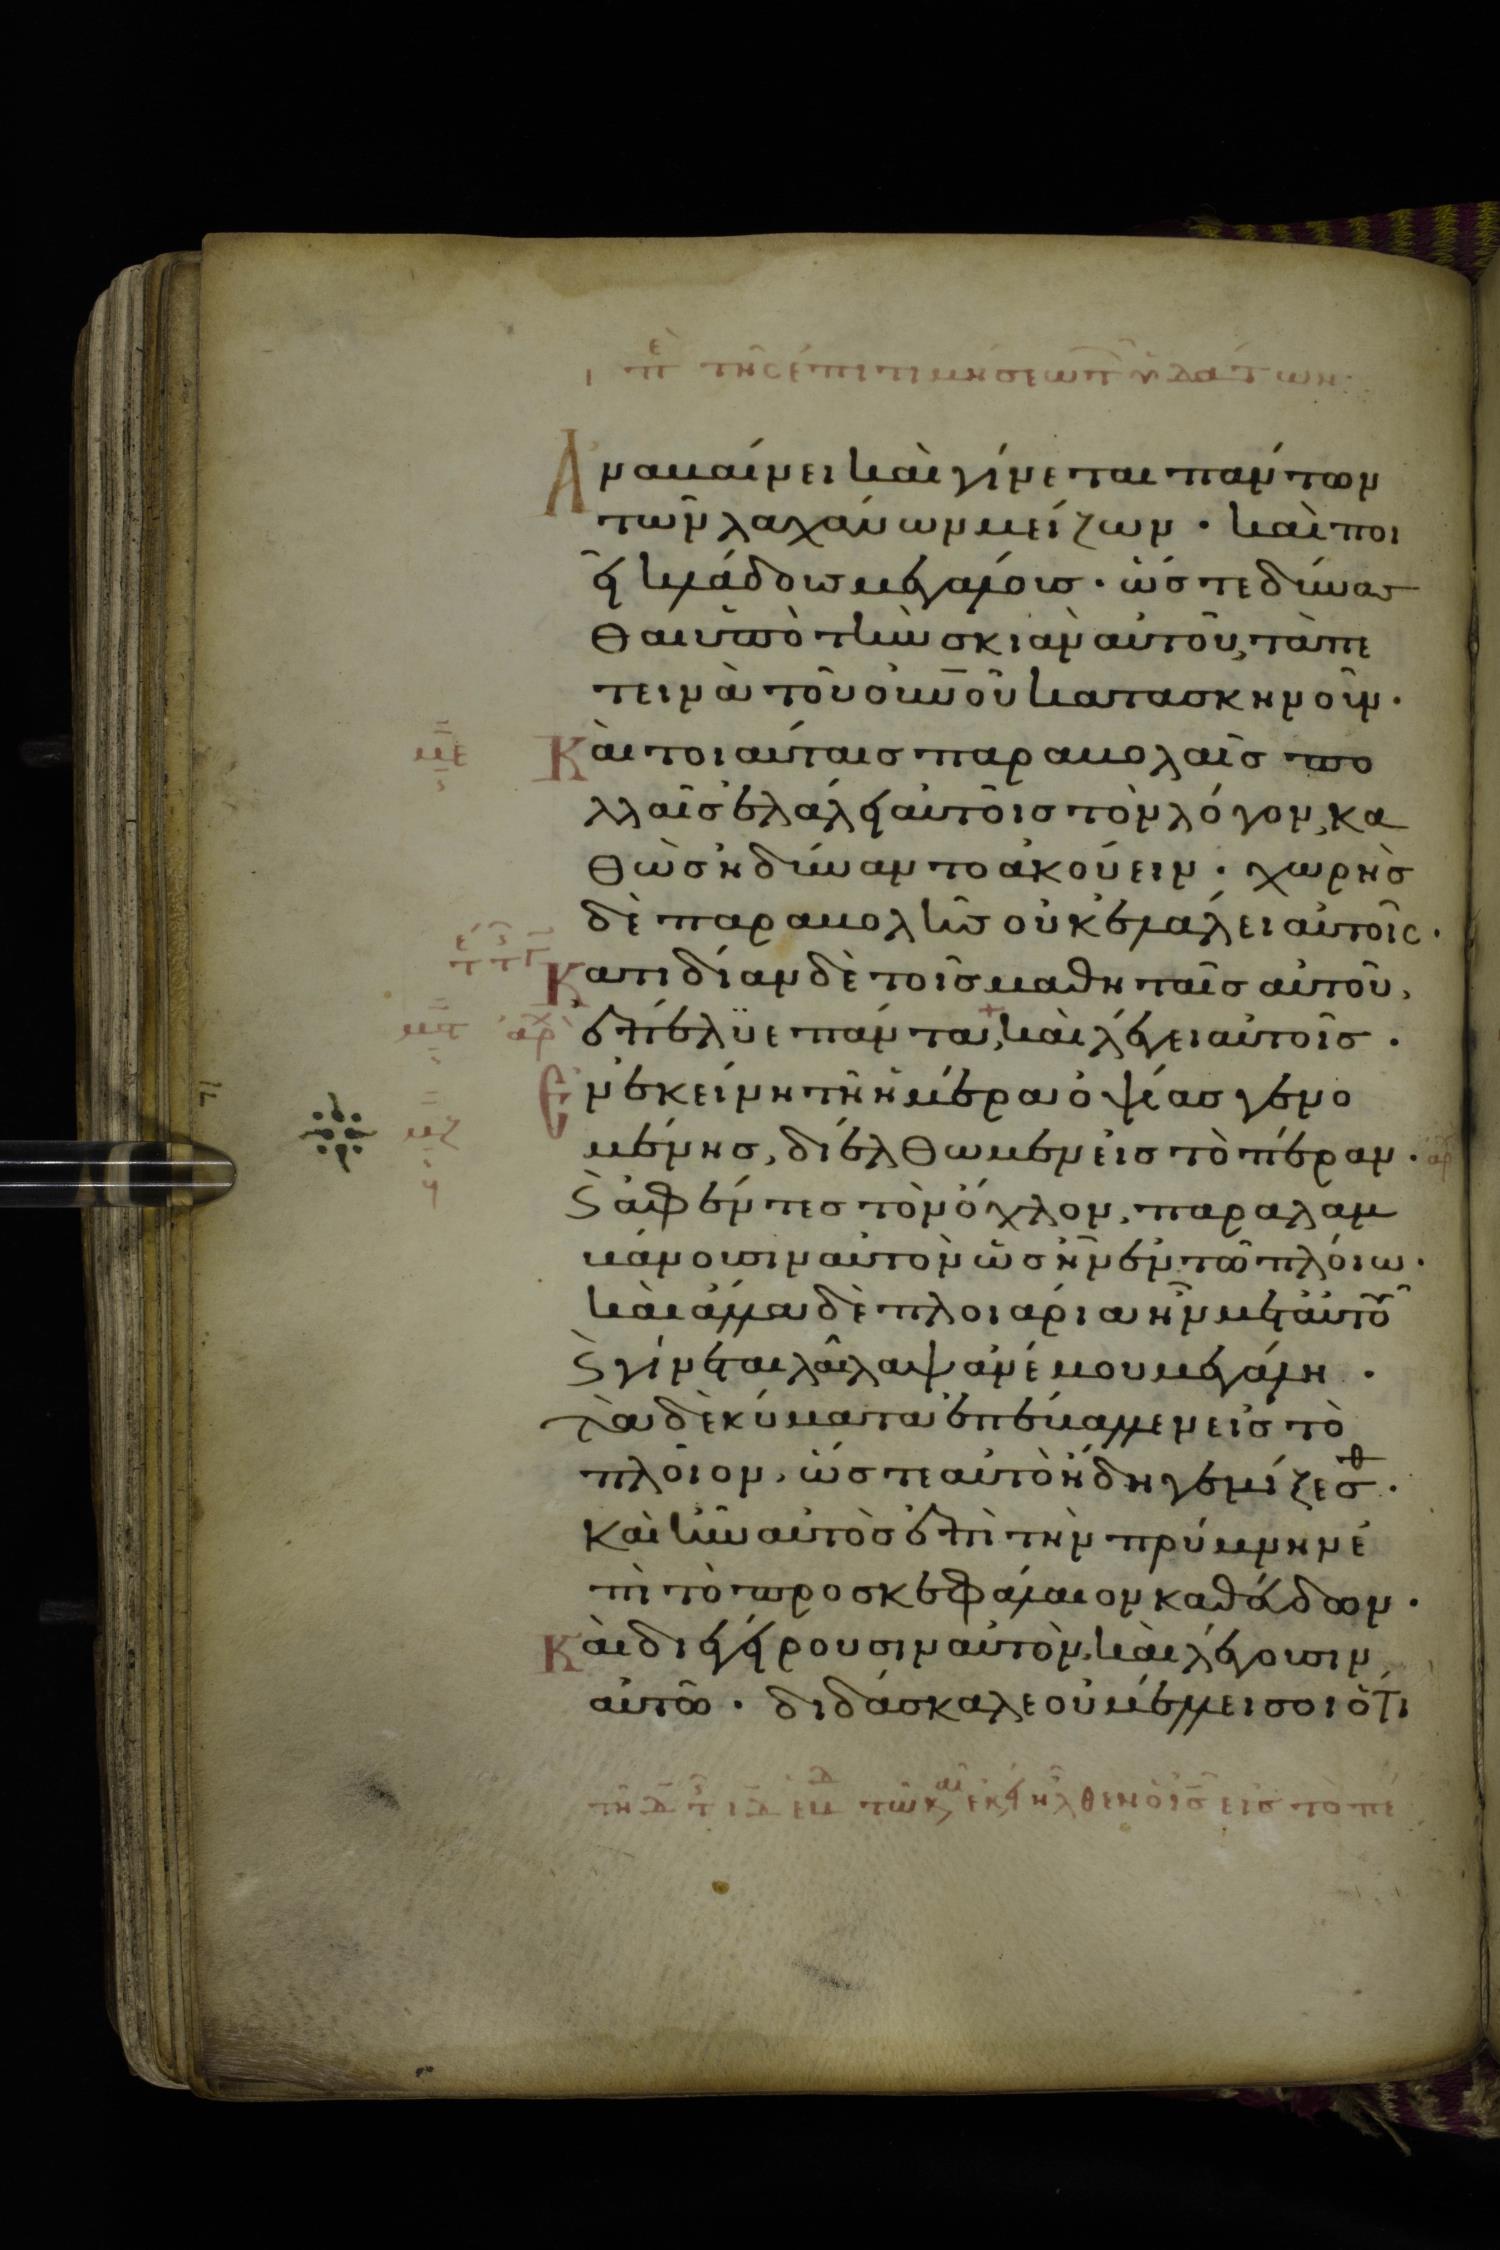 ι πε τῆς ἐπιτιμήσεως τ ὑδάτων
Ἀναβαίνει καὶ γίνεται πάντων
τῶν λαχάνων μείζων · καὶ ποι
εῖ κλάδους μεγάλους · ὥστε δύνασ
θαι ὑπὸ τὴν σκιὰν αὐτοῦ, τὰ πε
τεινὰ τοῦ οὐνοῦ κατασκηνοῦν ·
με
Καὶ τοιαύταις παραβολαῖς πο
λλαῖς ἐλάλει αὐτοῖς τὸν λόγον, κα
θὼς ἠδύναντο ἀκούειν · χωρὴς
δὲ παραβολῆς οὐκ ἐλάλει αὐτοῖς ·
Κατιδίαν δὲ τοῖς μαθηταῖς αὐτοῦ,
ἐπέλϋε πάντα, + καὶ λέγει αὐτοῖς ·
αρχ
Ἐν ἐκείνη τῆ ἡμέρα ὀψίας γενο
μζ
μένης, διέλθωμεν εἰς τὸ πέραν ·
ϛ ἀφέντες τὸν ὄχλον, παραλαμ
βάνουσιν αὐτὸν ὡς ἦν ἐν τῶ πλοίω ·
καὶ ἄλλα δὲ πλοιάρια ἦν μετ' αὐτοῦ
ϛ γίνεται λαῖλαψ ἀνέμου μεγάλη ·
τὰ δὲ κύματα ἐπέβαλλεν εἰς τὸ
πλοῖον, ὥστε αὐτὸ ἤδη γεμίζεσθ ·
καὶ ἦν αὐτὸς ἐπὶ τὴν πρύμνην ἐ
πὶ τὸ προσκεφάλαιον καθεύδων ·
Καὶ διεγείρουσιν αὐτὸν, καὶ λέγουσιν
αὐτῶ · διδάσκαλε οὐ μέλλει σοι ὅτι
τῆ δ τ ιδ εβδ τῶ κ αι εκ ἦλθεν ὁ ις εἰς τὸ πέ